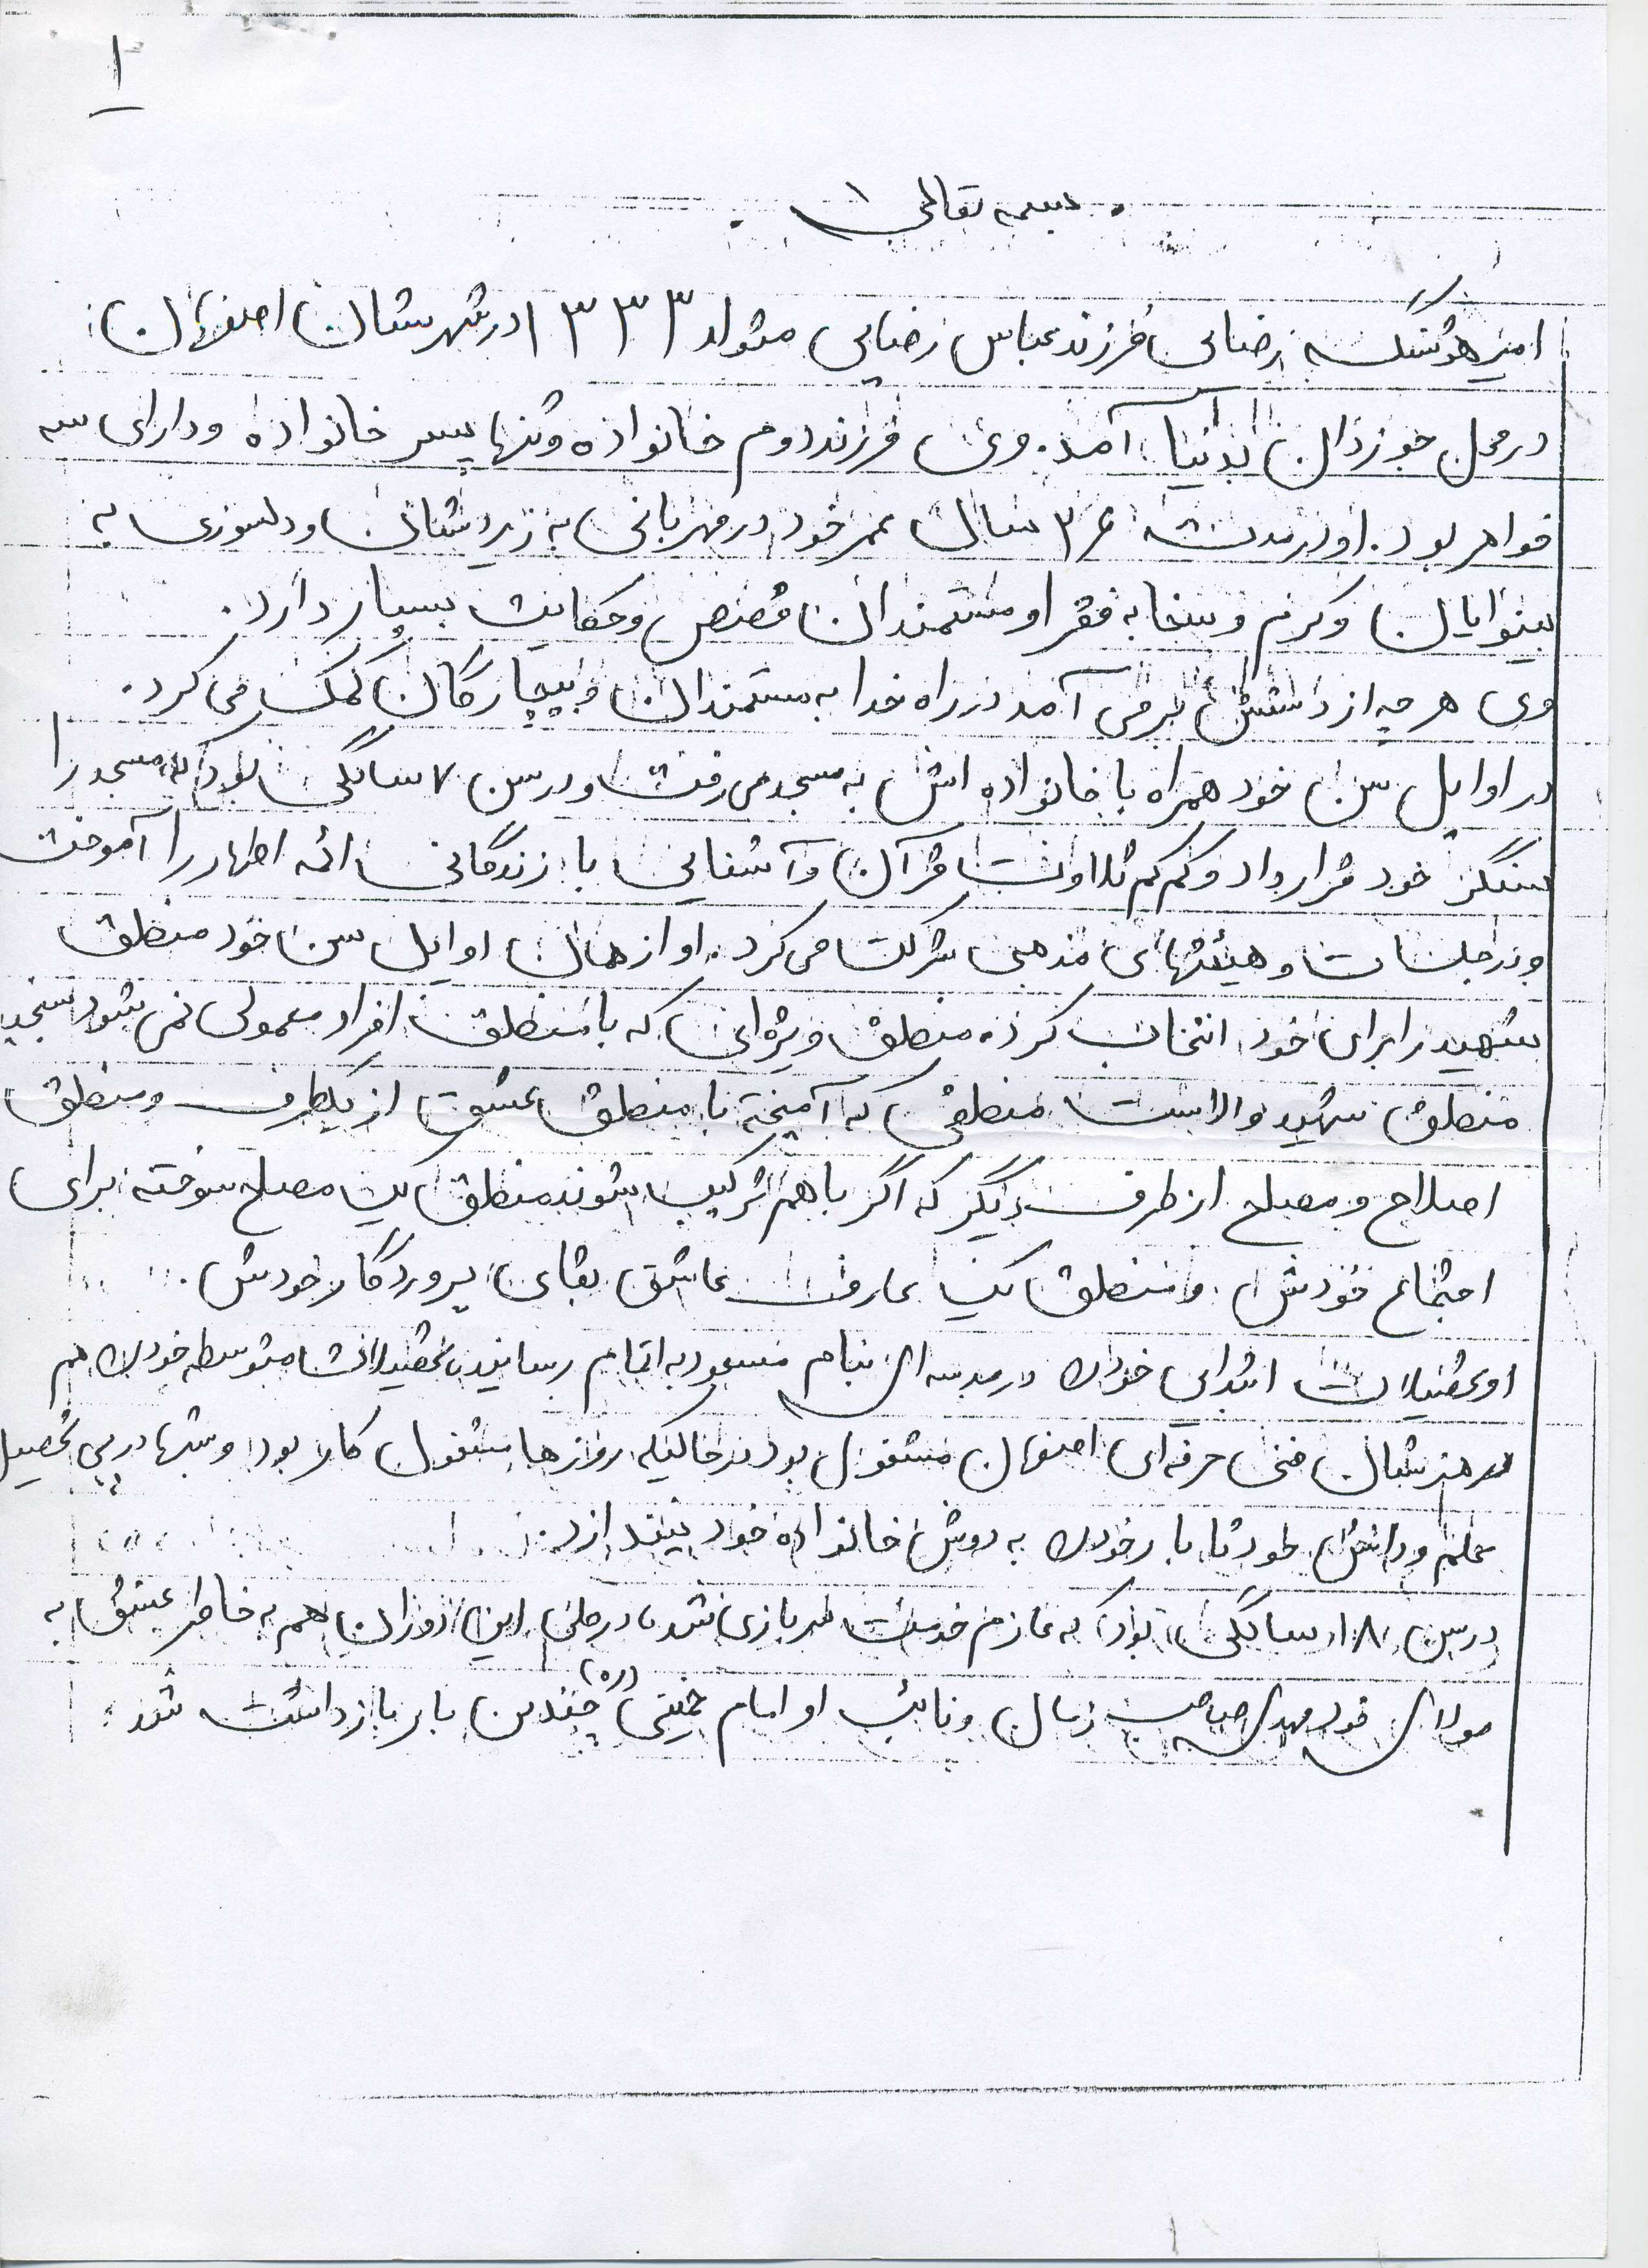 ۱
بسمه تعالی
امیرهوشنگ رضایی فرزند عباس رضایی متولد ۱۳۳۳ در شهرستان اصفهان
در محل خوزان بدنیا آمد. وی فرزند دوم خانواده و تنها پسر خانواده و دارای سه
خواهر بود. او در مدت ۲۶ سال عمر خود در مهربانی به زیردستان و دلسوزی به
بینوایان و کرم و سخا به فقرا و مستمندان قصص و حکایت بسیار دارد.
وی هر چه از دستش برمی آمد در راه خدا به مستمندان و بیچارگان کمک می کرد.
در اوایل سن خود همراه با خانواده اش به مسجد می رفت و در سن ۷ سالگی بود که مسجد را
سنگر خود قرار داد و کم کم تلاوت قرآن و آشنایی با زندگانی ائمه اطهار را آموخت
و در جلسات و هیئتهای مذهبی شرکت می کرد. او از همان اوایل سن خود منطق
شهید را برای خود انتخاب کرد. منطق ویژه ای که با منطق افراد معمولی نمی شود سنجید
منطق شهید والاست منطقی که آمیخته با منطق عشق از یکطرف و منطق
اصلاح و مصلح از طرف دیگر که اگر با هم ترکیب شوند منطق یک مصلح سوخته برای
اجتماع خودش و منطق یک عارف عاشق بقای پروردگار خودش.
او تحصیلات ابتدای خود را در مدرسه ای بنام مسعود به اتمام رسانید تحصیلات متوسطه خود را هم
در هنرستان فنی حرفه ای اصفهان مشغول بود در حالیکه روزها مشغول کار بود و شبها در پی تحصیل
علم و دانش بود تا بار خود را به دوش خانواده خود نیندازد.
در سن ۱۸ سالگی بود که عازم خدمت سربازی شد در این دوران هم به خاطر عشق به
مولای خود مهدی صاحب زمان و نائب او امام خمینی (ره) چندین بار بازداشت شد